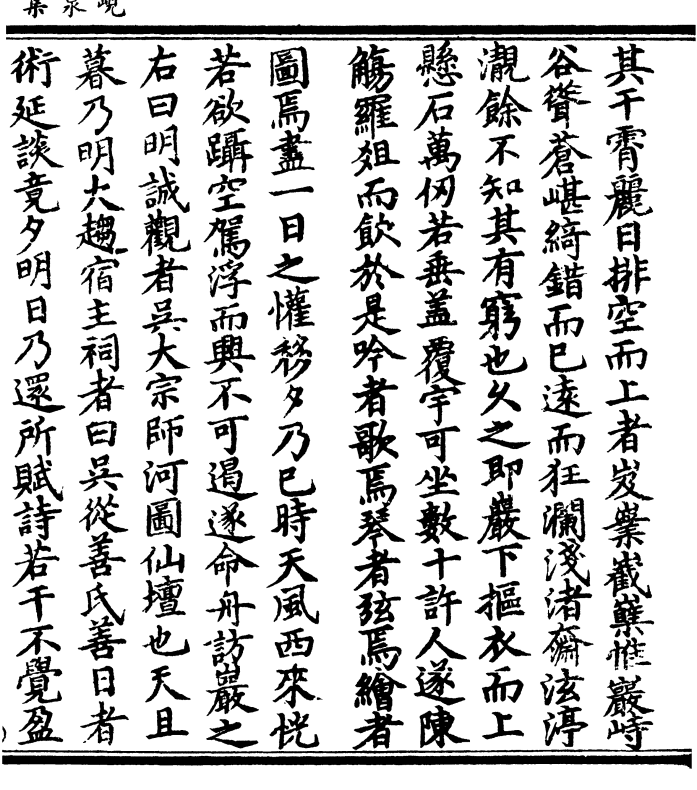 峴泉集
其干霄麗日排空而上者岌嶪巀嶭惟巖峙
谷聳蒼嵁綺錯而已遠而狂瀾淺渚奫泫渟
瀙餘不知其有窮也久之即巖下摳衣而上
懸石萬仞若垂蓋覆宇可坐數十許人遂陳
觴羅俎而飲於是吟者歌焉琴者弦焉繪者
圖焉盡一日之懽移夕乃已時天風西來恍
若欲躡空駕浮而興不可遏遂命舟訪巖之
右曰明誠觀者吳大宗師河圖仙壇也天且
暮乃明大趨宿主祠者曰吳從善氏善日者
術延談竟夕明日乃還所賦詩若干不覺盈